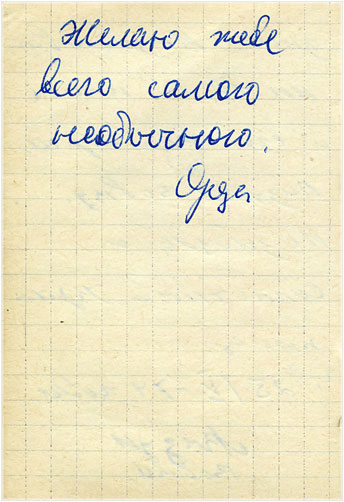 Желаю тебе
всего самого
необычного.